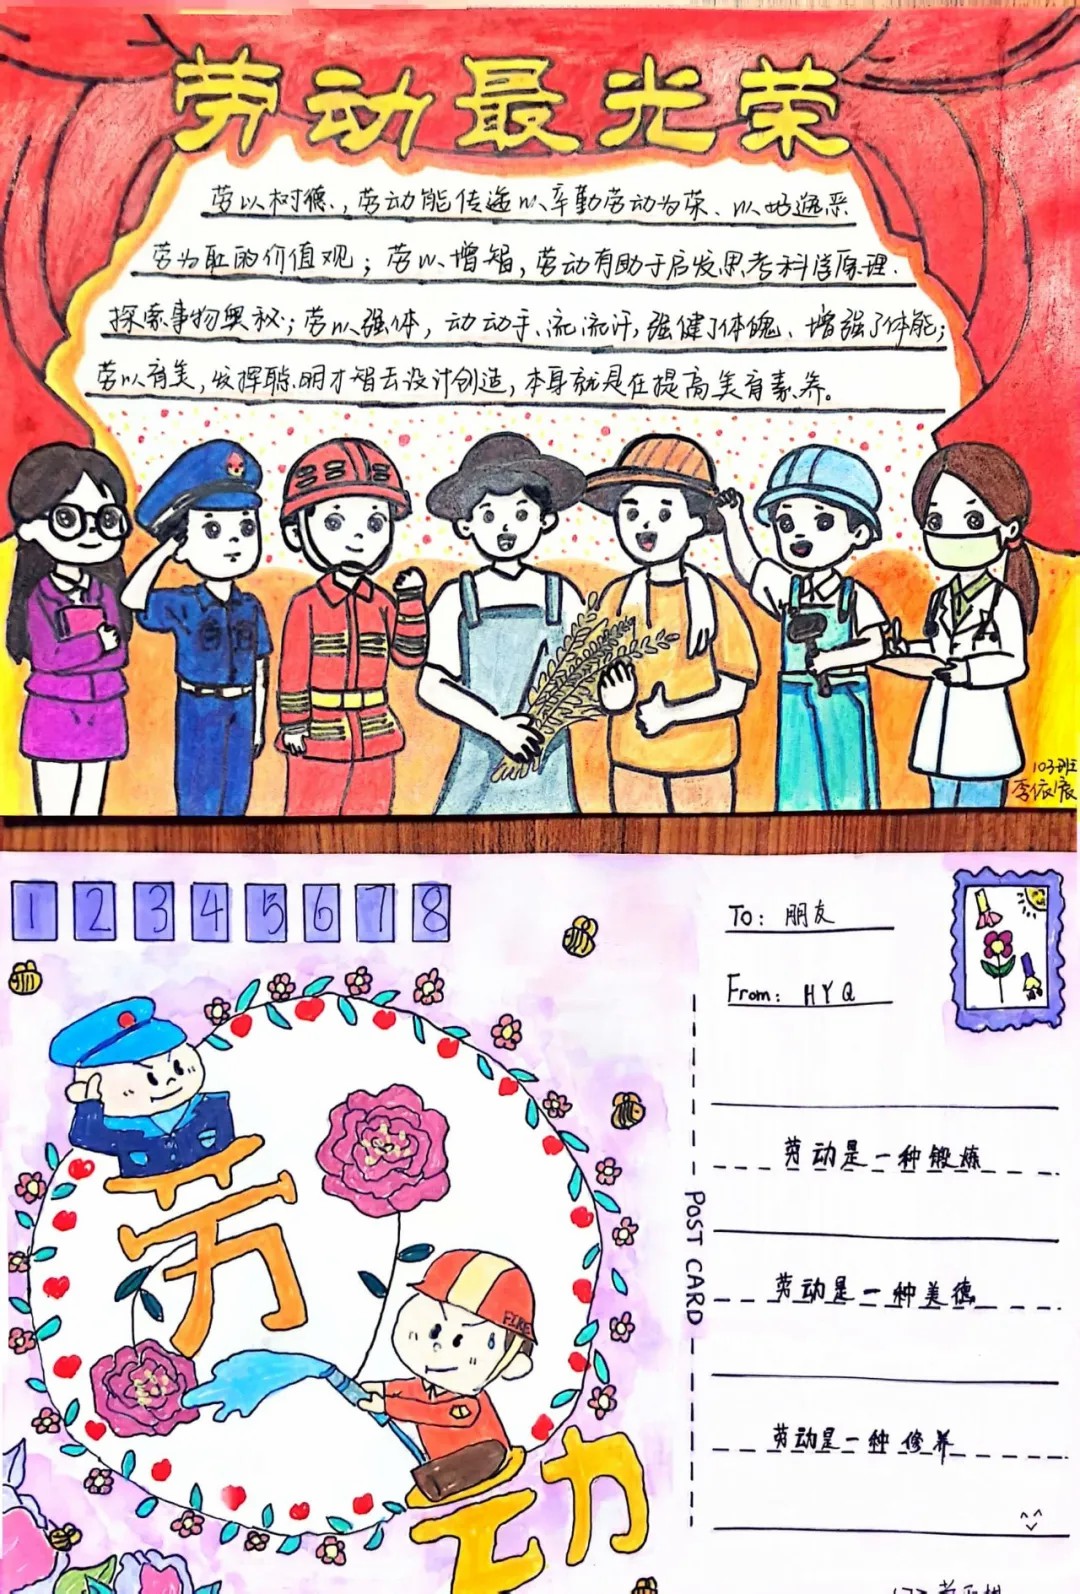 劳动最光荣
劳以树德，劳动能传递以辛勤劳动为荣、以好逸恶
劳为耻的价值观；劳以增智，劳动有助于启发思考科学原理、
探索事物奥秘；劳以强体，动动手、流流汗，强健了体魄、增强了体能；
劳以育美，发挥聪明才智去设计创造，本身就是在提高美育素养。
103班
李依宸
1 2 3 4 5 6 7 8
To：朋友
From：HYQ
劳
FIRE
动
POST CARD
劳动是一种锻炼
劳动是一种美德
劳动是一种修养